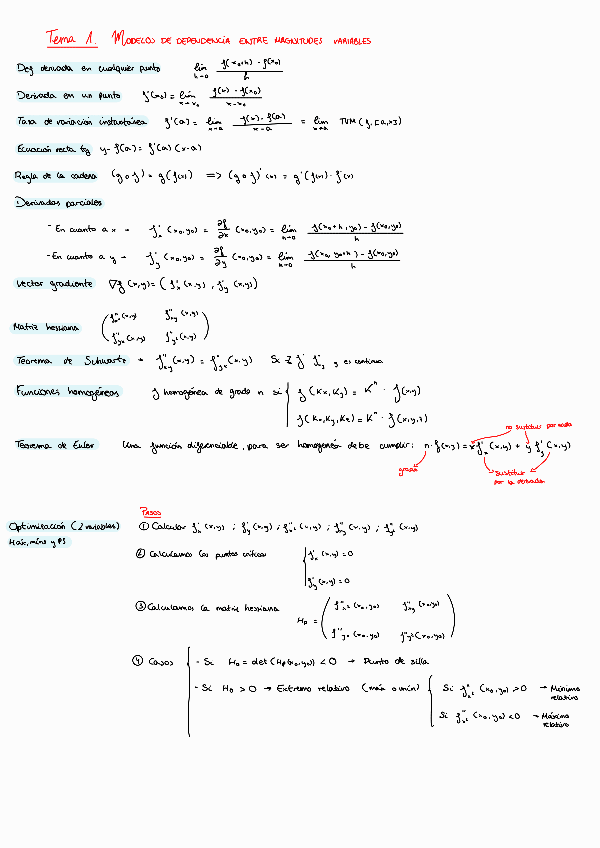 Tema 1. MODELOS DE DEPENDENCIA ENTRE MAGNITUDES VARIABLES
Def derivada en cualquier punto lim h→0 f(x₀+h) - f(x₀) / h
Derivada en un punto f'(x₀) = lim x→x₀ f(x) - f(x₀) / x-x₀
Tasa de variación instantánea f'(a) = lim x→a f(x) - f(a) / x-a = lim x→a TVM (f, [a,x])
Ecuación recta tg y - f(a) = f'(a) (x-a)
Regla de la cadena (g o f) = g(f(x)) => (g o f)'(x) = g'(f(x)) · f'(x)
Derivadas parciales
- En cuanto a x → f'x (x₀,y₀) = ∂f/∂x (x₀,y₀) = lim h→0 f(x₀+h, y₀) - f(x₀,y₀) / h
- En cuanto a y → f'y (x₀,y₀) = ∂f/∂y (x₀,y₀) = lim h→0 f(x₀, y₀+h) - f(x₀,y₀) / h
Vector gradiente ∇f (x,y) = (f'x (x,y), f'y (x,y))
Matriz hessiana
f''x² (x,y) f''xy (x,y)
f''yx (x,y) f''y² (x,y)
Teorema de Schwartz → f''xy (x,y) = f''yx (x,y) Si f'y y es continua
Funciones homogéneas f homogénea de grado n si f (Kx,Ky) = Kⁿ · f(x,y)
f(Kx,Ky,Kz) = Kⁿ · f(x,y,z)
no sustituir por nada
Teorema de Euler Una función diferenciable, para ser homogénea debe cumplir: n · f(x,y) = x f'x (x,y) + y f'y (x,y)
grado
sustituir
por la derivada
PASOS
Optimización (2 variables) ① Calcular f'x (x,y) ; f'y (x,y) ; f''x² (x,y) ; f''xy (x,y) ; f''y² (x,y)
Máx, míns y PS
② Calculamos los puntos críticos f'x (x,y) = 0
f'y (x,y) = 0
③ Calculamos la matriz hessiana Hp =
f''x² (x₀,y₀) f''xy (x₀,y₀)
f''yx (x₀,y₀) f''y² (x₀,y₀)
④ Casos - Si Hp = det (Hf(x₀,y₀)) < 0 → Punto de silla
- Si Hp > 0 → Extremo relativo (máx o mín) Si f''x² (x₀,y₀) > 0 → Mínimo relativo
Si f''x² (x₀,y₀) < 0 → Máximo relativo